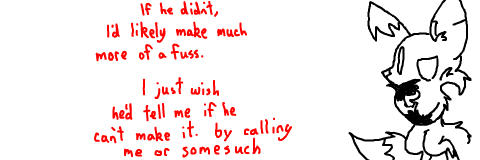 If he didn't,
I'd likely make much
more of a fuss.
I just wish
he'd tell me if he
can't make it. by calling
me or somesuch